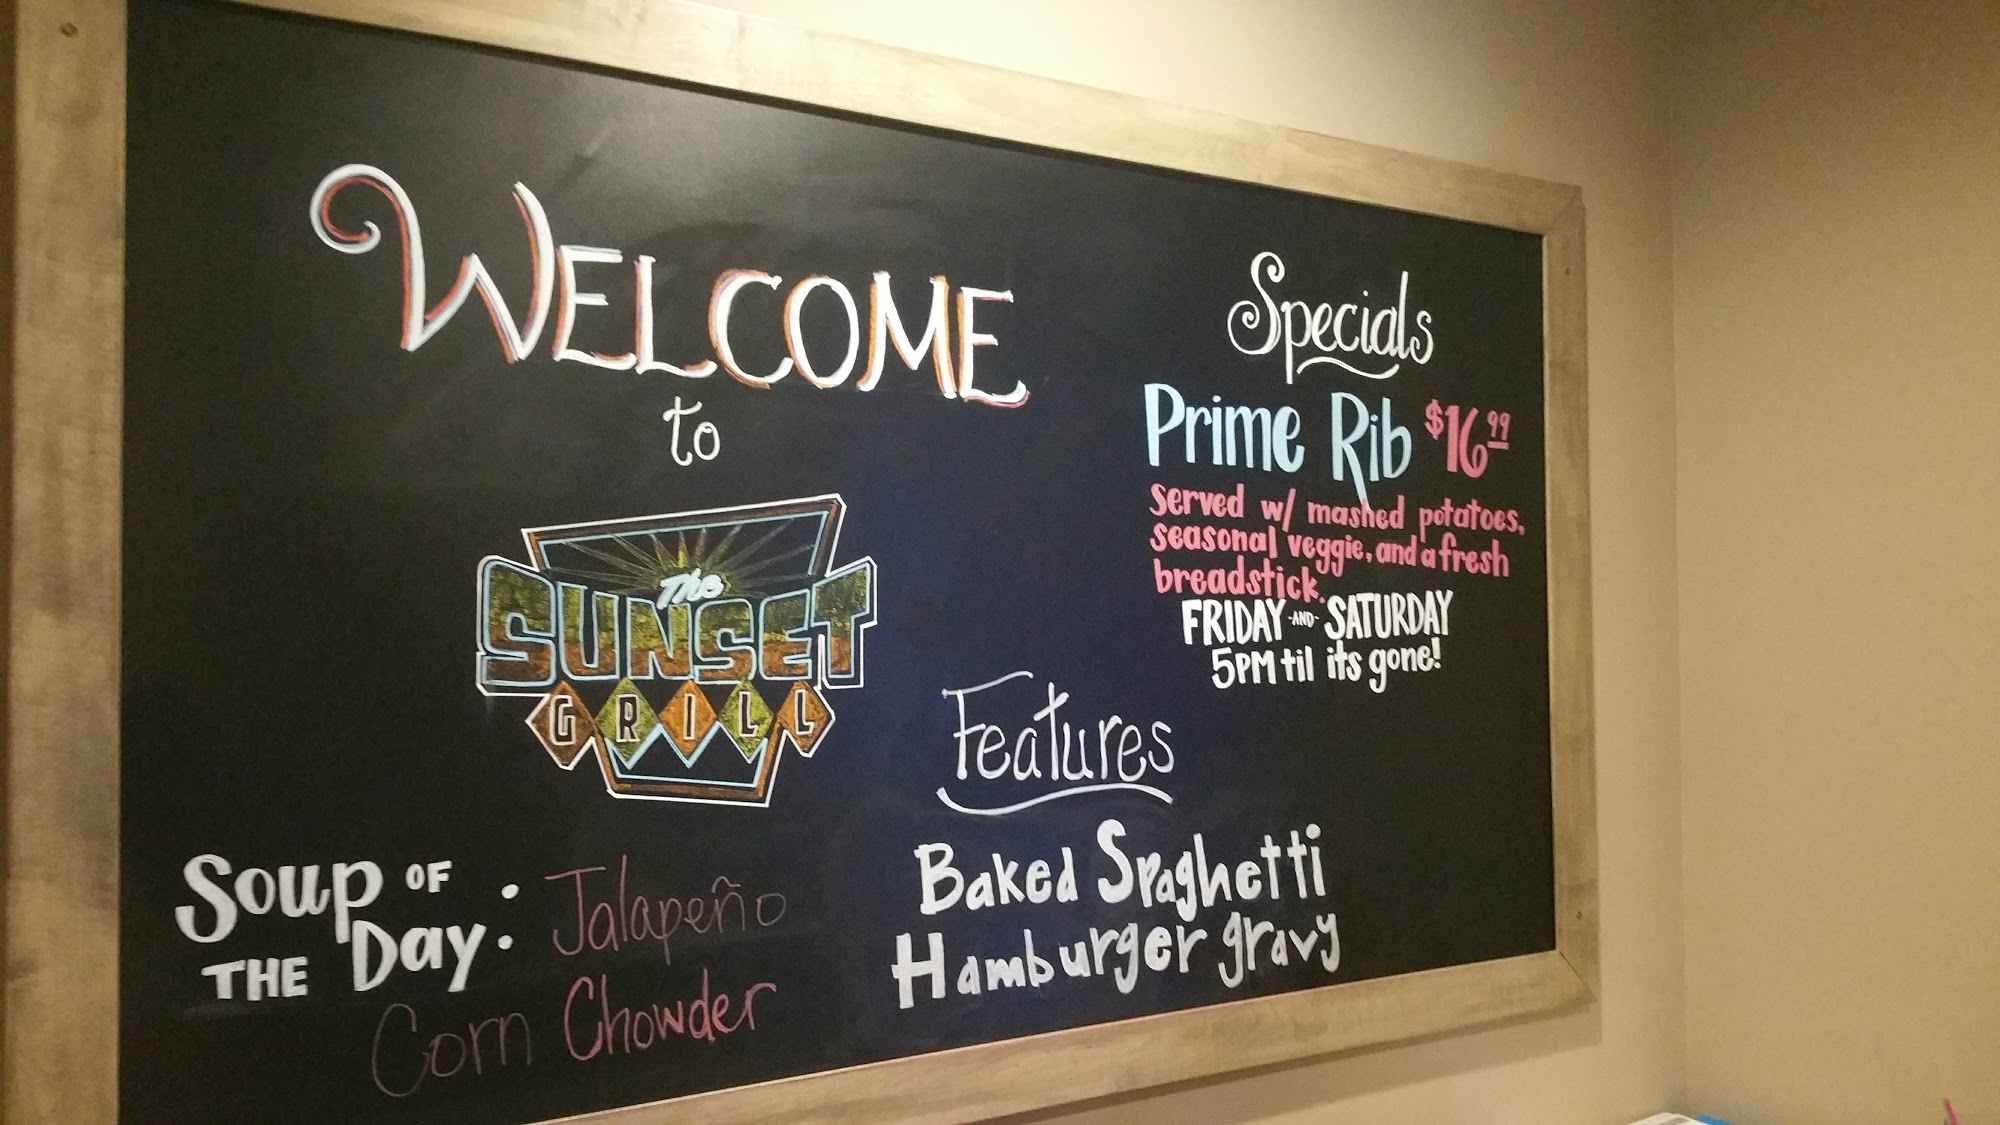 WELCOME
to
The
SUNSET
GRILL
Soup OF
THE Day: Jalapeño
Corn Chowder
Specials
Prime Rib $16.99
Served w/ mashed potatoes,
seasonal veggie, and a fresh
breadstick.
FRIDAY -AND- SATURDAY
5PM til its gone!
Features
Baked Spaghetti
Hamburger gravy